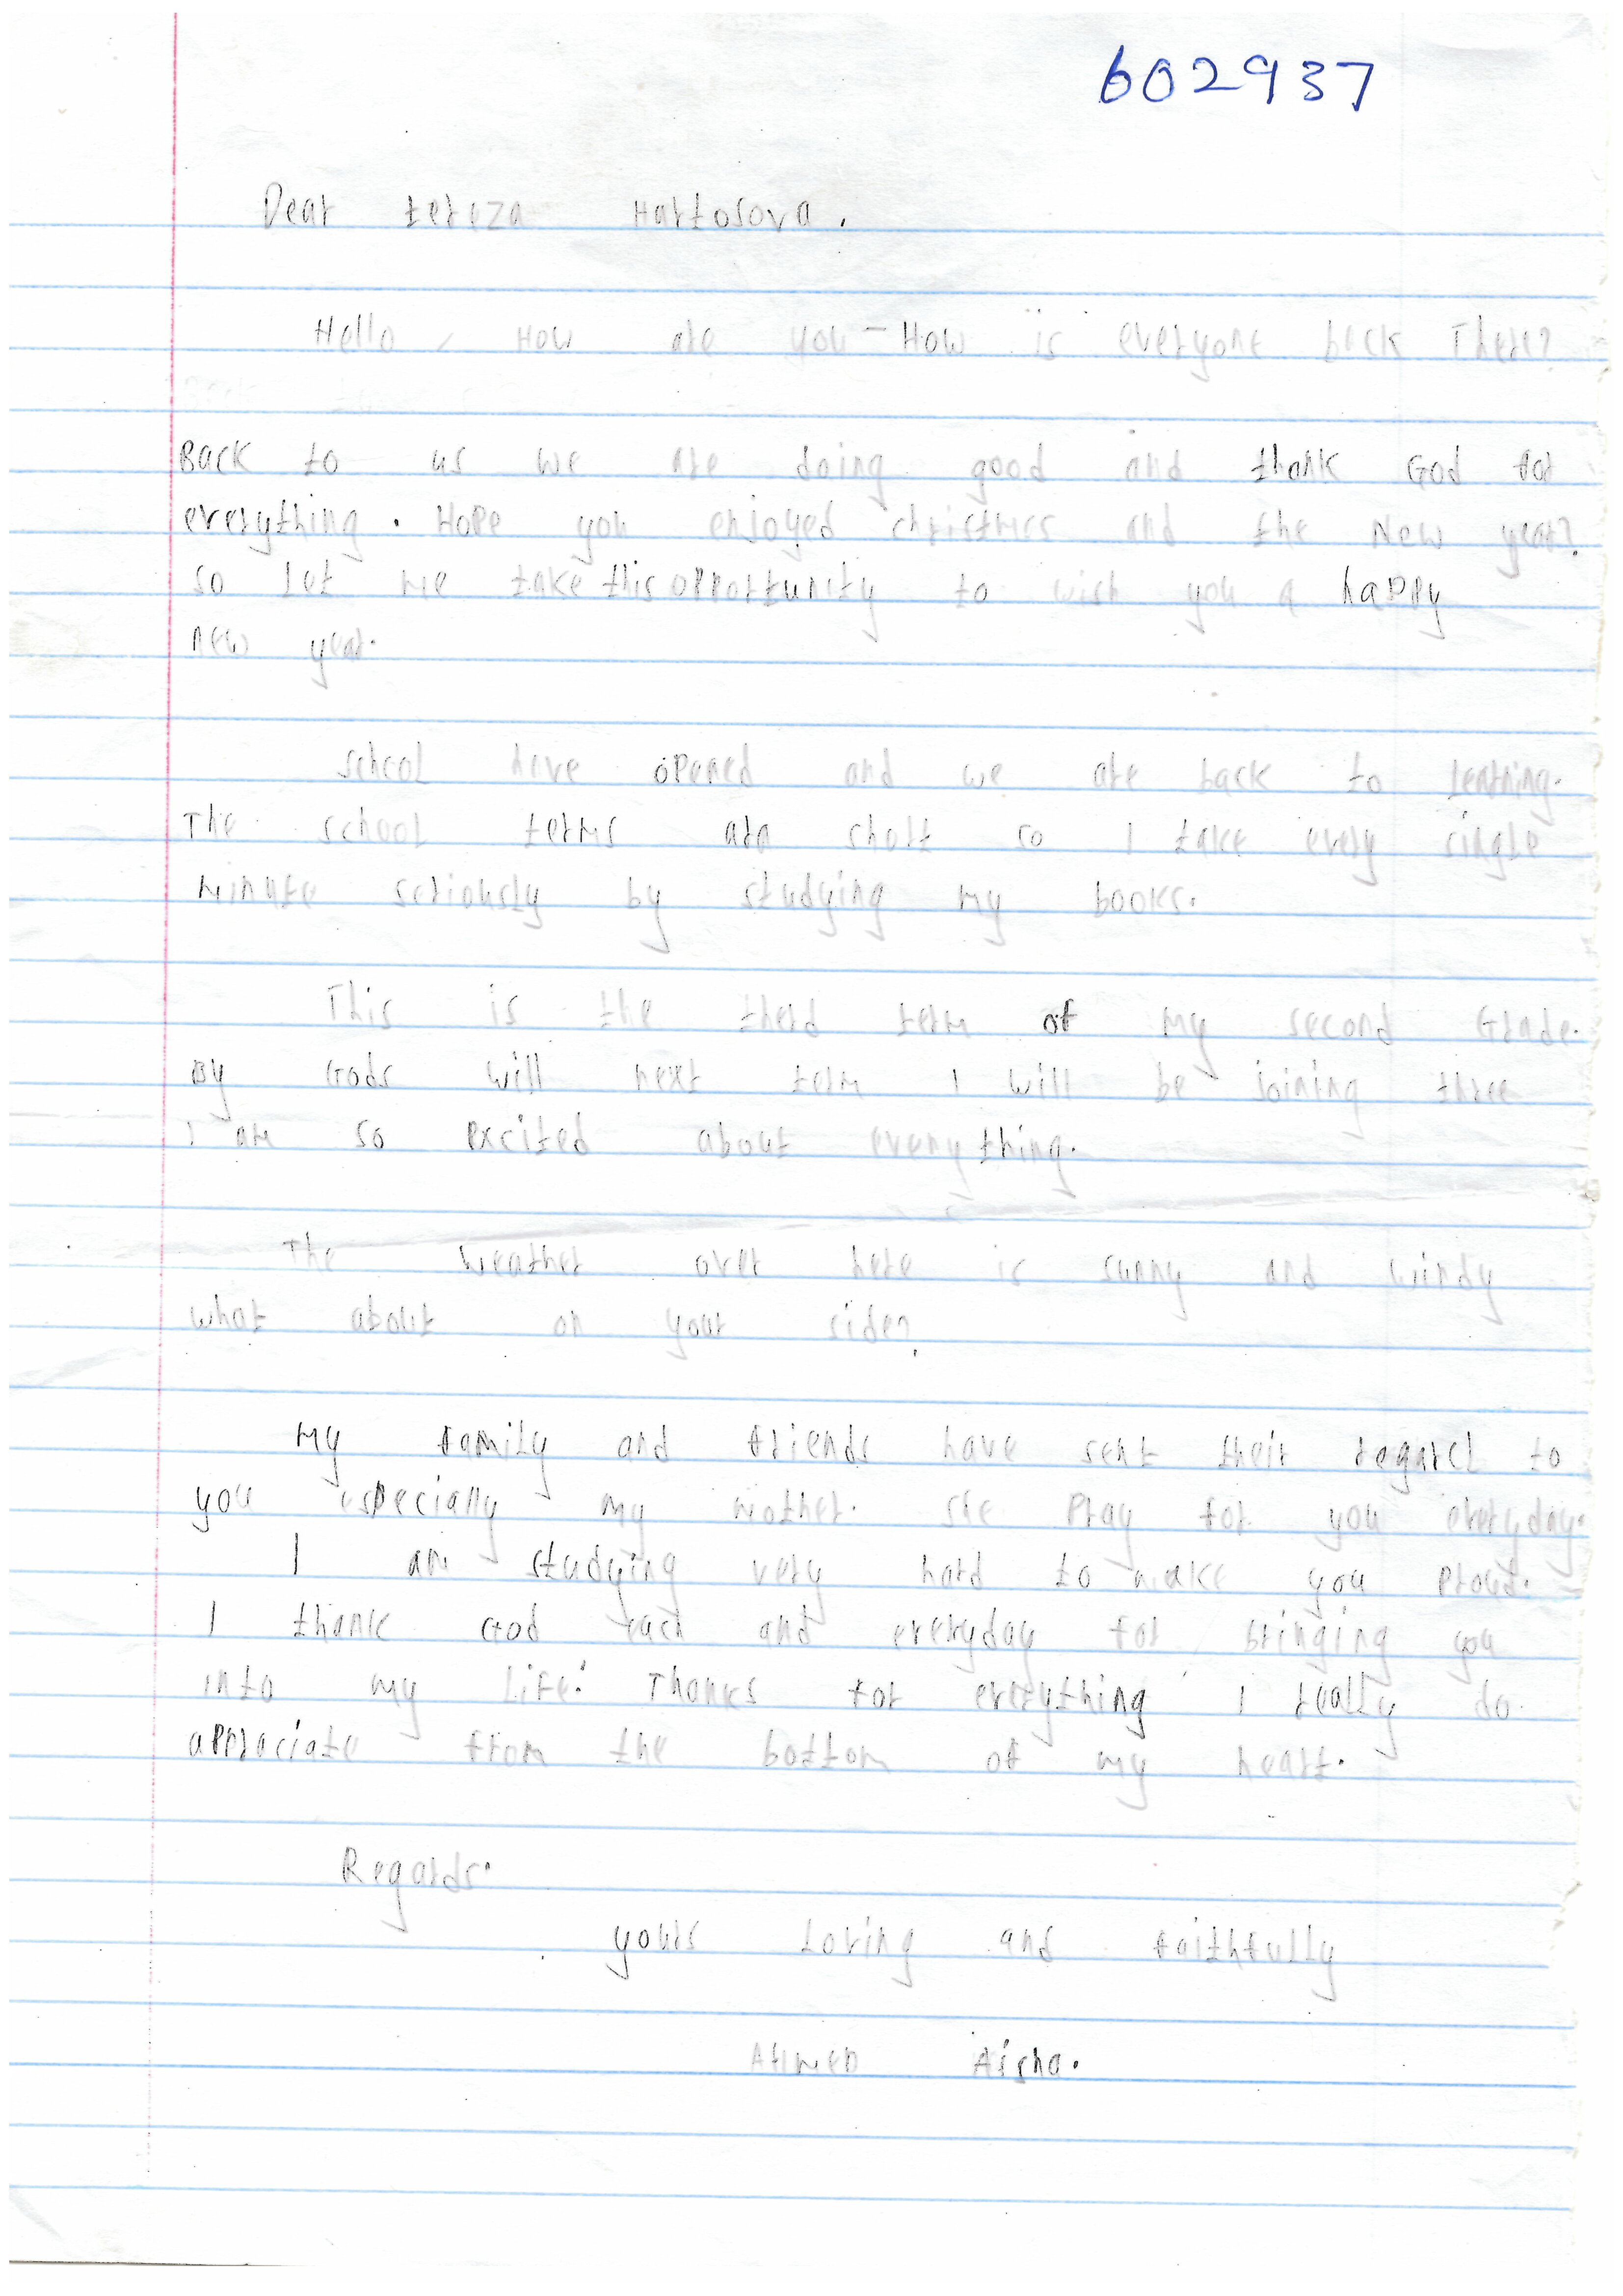 602937
Dear tereza Hartosova.
Hello, How are you - How is everyone back There?
Back to us we are doing good and thank God for
everything. Hope you enjoyed christmas and the New year?
so let me take this opportunity to wish you a happy
new year.
school have opened and we are back to learning.
The school terms are short so I take every single
minute seriously by studying my books.
This is the therd term of my second Grade.
By Gods will next term I will be joining three
I am so excited about everything.
The weather over here is sunny and windy
what about on your side?
My family and friends have sent their regard to
you especially my mother. she Pray for you everyday.
I am studying very hard to make you proud.
I thank God each and everyday for bringing you
into my life. Thanks for everything I really do
appreciate from the bottom of my heart.
Regards.
yours Loving and faithfully
Ahmed Aisha.